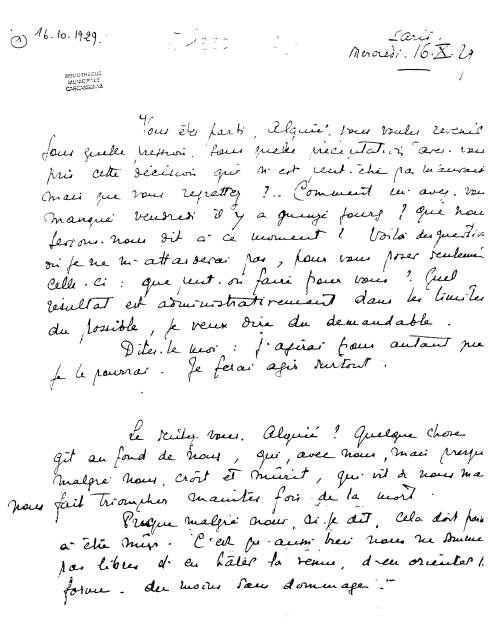 ① 16.10.1929.
Paris.
Mercredi. 16.X.29
BIBLIOTHEQUE
MUNICIPALE
CARCASSONNE
Vous êtes parti, Alquié. vous voulez revenir
sous quelle pression. sous quelle précipitation avez-vous
pris cette décision qui n'est peut-être pas mauvaise
mais que vous regrettez ?.. Comment m'avez-vous
manqué vendredi il y a quinze jours ? que nous
serions-nous dit à ce moment ? Voilà des questions
où je ne m'attarderai pas, pour vous poser seulement
celle-ci : que peut-on faire pour vous ? Quel
résultat est administrativement dans les limites
du possible, je veux dire du demandable.
Dites-le moi : j'agirai pour autant que
je le pourrai. Je ferai agir surtout.
Le sentez-vous. Alquié ? Quelque chose
gît au fond de nous, qui, avec nous, mais presque
malgré nous, croît et mûrit, qui vit de nous mais
nous fait triompher maintes fois de la mort.
Presque malgré nous, ai-je dit, cela doit
à être mûr. C'est qu'aussi bien nous ne sommes
pas libres d'en hâter la venue, d'en orienter la
forme. du moins sans dommage.